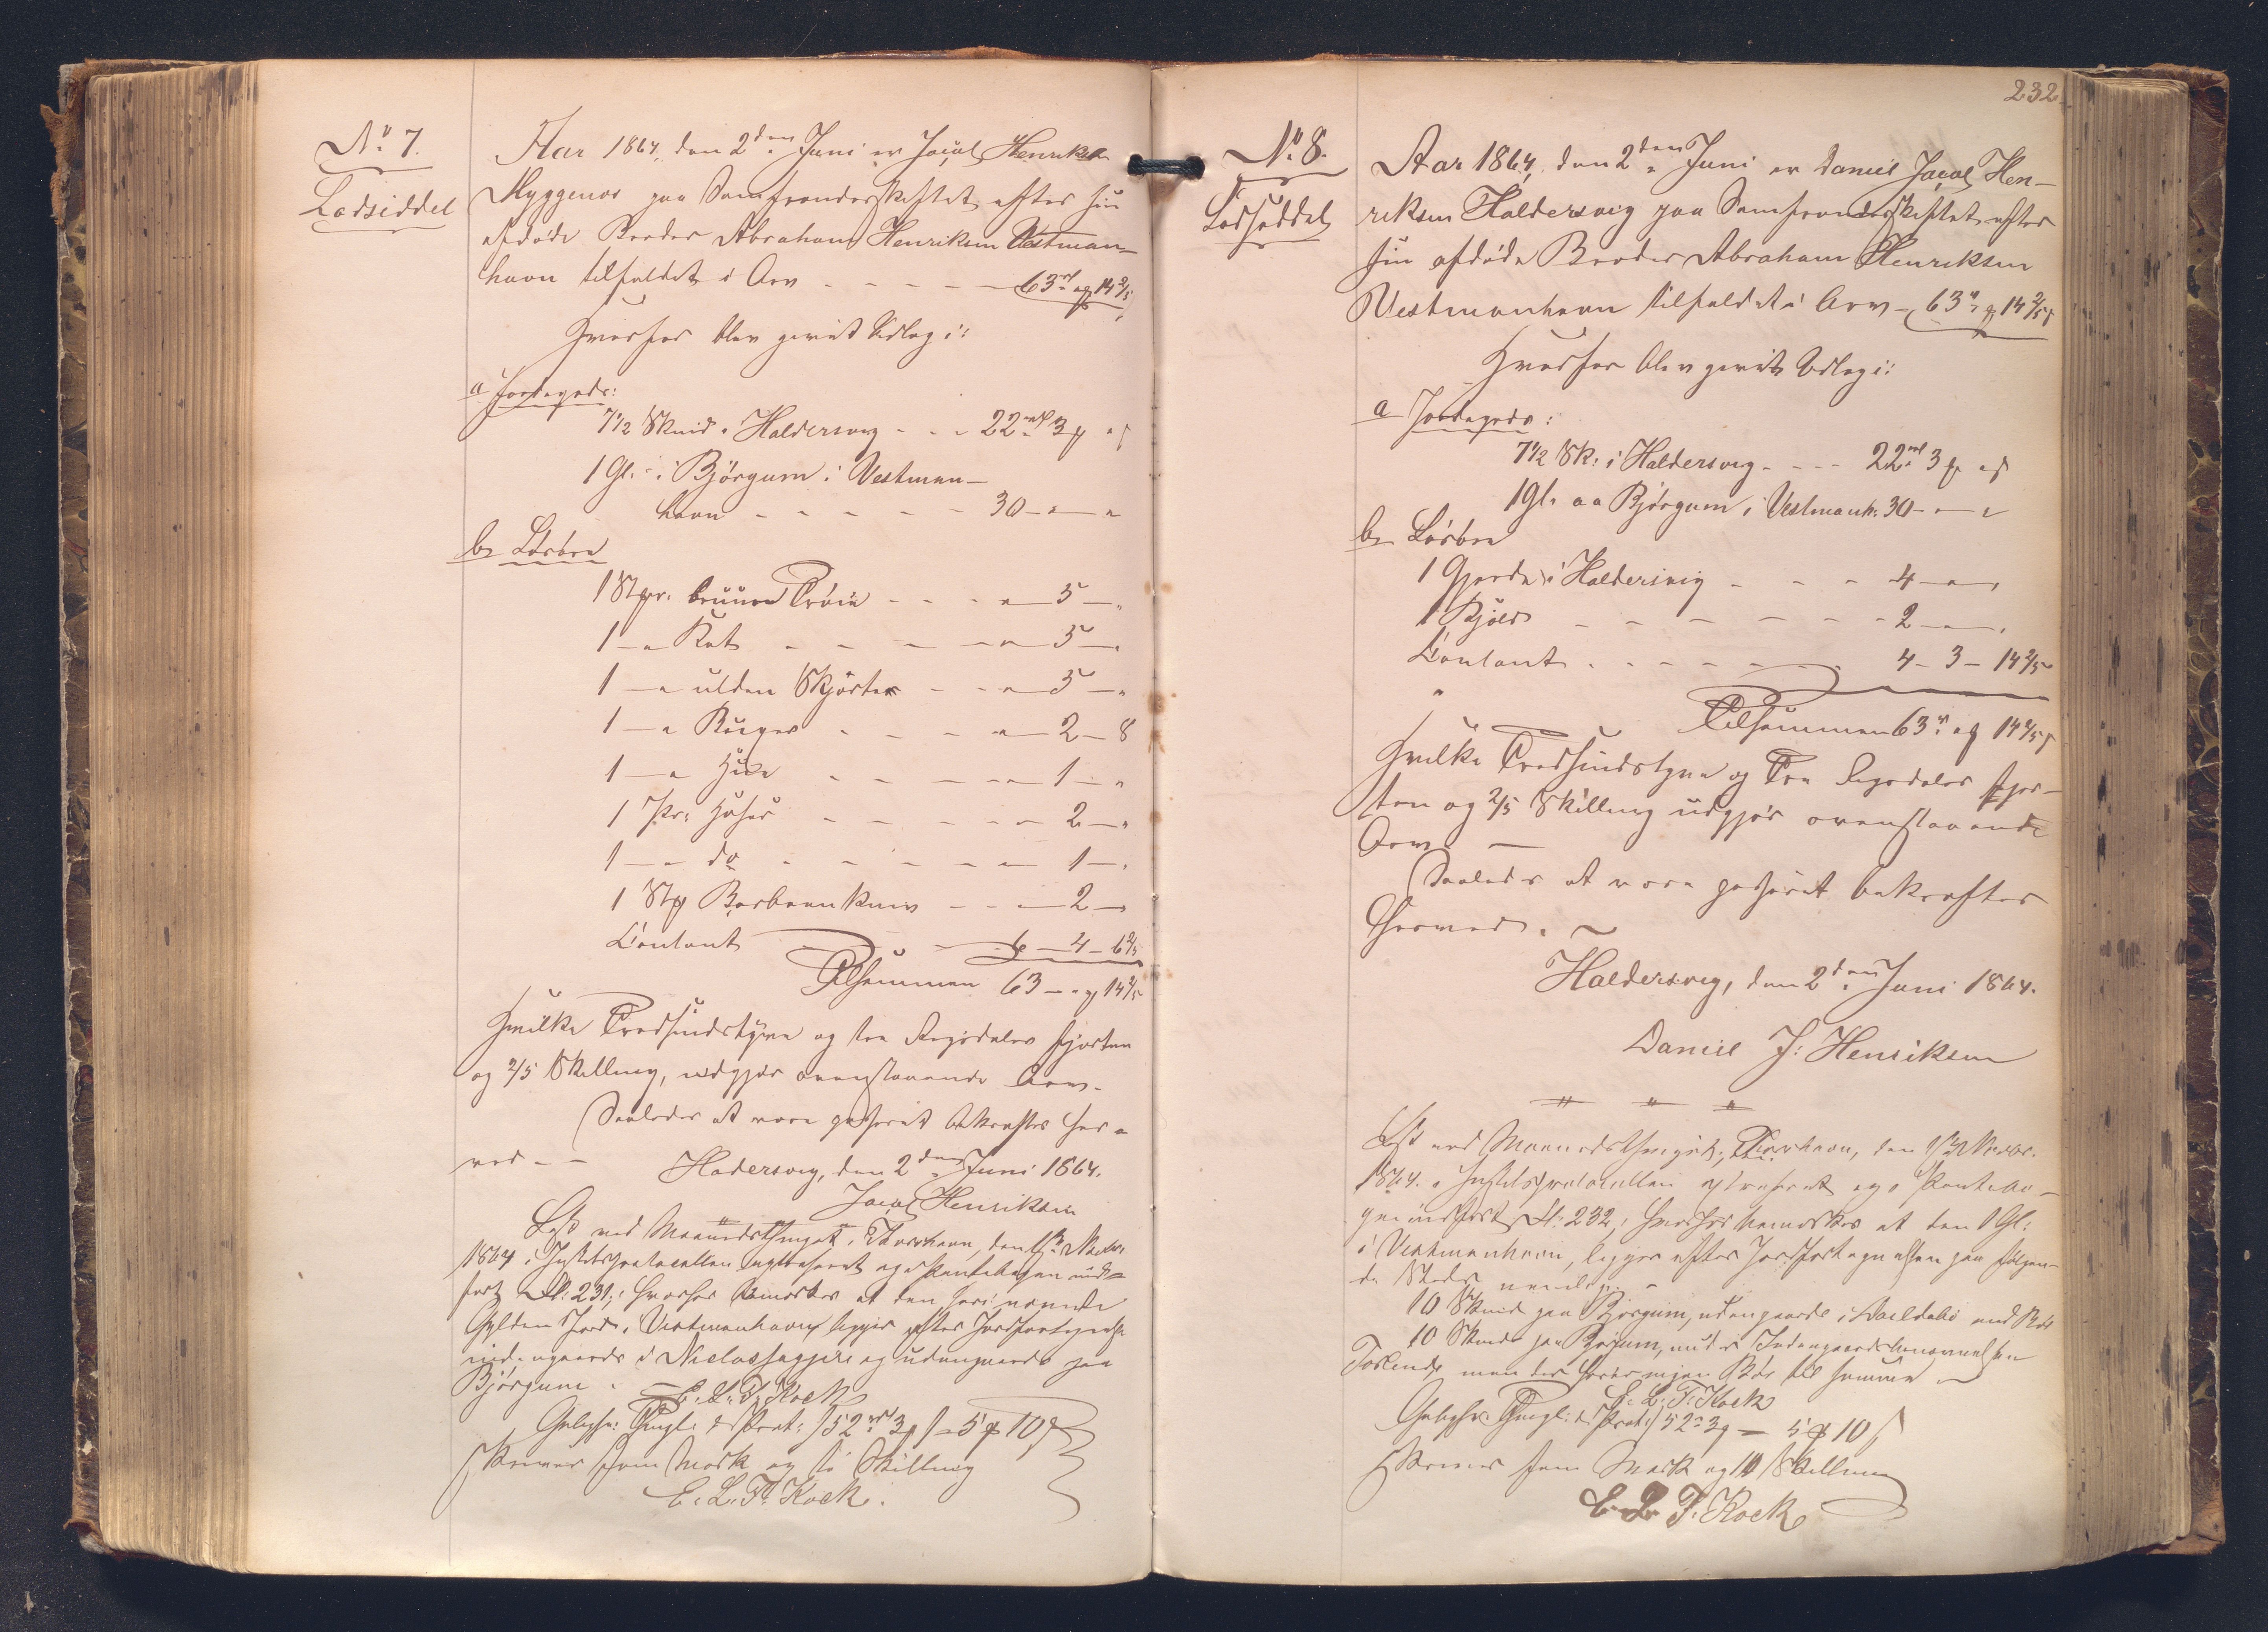 No. 7.
Lodseddel
Aar 1864, den 2den Juni er Jacob Henriksen
Myggenæs paa Samfrændeskiftet efter sin
afdøde Broder Abraham Henriksen Vestman-
havn tilfaldet i Arv - - - - - 63rd " 14 2/5 s
Hvorfor blev givet Udlæg i:
a Jordegods:
7 1/2 Skind i Haldersvig - - - 22rd 3 " s
1 Gl: i Bjørgum i Vestman-
havn - - - - - 30 - " - "
b, Løsøre
1 Stk. Trøie - - - " - 5 - "
1 - " - - - - " - 5 - "
1 - " ulden Skjorte - - " - 5 - "
1 - " Buxer - - - " - 2 - 8
1 - " Hue - - - - " - 1 - "
1 Par Hoser - - - - " - 2 - "
1 - " do - - - - " - 1 - "
1 Stk Barbeerkniv - - " - 2 - "
Contant - 6 - 4 - 6 2/5
Tilsammen 63 - " 14 2/5
Hvilke Tredsindstyve og tre Rigsdaler fjorten
og 2/5 Skilling, udgjør ovenstaaende Arv.
Saaledes at være passeret bekræftes her-
ved - - Hadersvig, den 2den Juni 1864.
Jacob Henriksen
Læst ved Maanedsthinget i Thorshavn, den
1864 i Justitsprotocollen extraheret og i Pantebogen ind-
ført Fl: 231; hvorhos bemærkes at den heri nævnte
Gylden Jord i Vestmanhavn ligger efter Jordfortegnelsen
indengaards i Niclasjagjere og udengaards paa
Bjørgum.
E. L. T. Kock
Gebyhr: Thingl: & Prot: /52rd 3 / - 5 10 s
skriver fem Mark og ti Skilling
E. L. T. Kock.
232.
No. 8.
Lodseddel
Aar 1864, den 2den Juni er Daniel Jacob Hen-
riksen Haldersvig paa Samfrændeskiftet efter
sin afdøde Broder Abraham Henriksen
Vestmanhavn tilfaldet i Arv - 63rd " 14 2/5 s
Hvorfor blev givet Udlæg i:
a Jordegods:
7 1/2 Sk: i Haldersvig - - - 22rd 3 " s
1 Gl. aa Bjørgum i Vestmanh. 30 - " - "
b, Løsøre
1 Gjerde i Haldersvig - - - 4 - " - "
1 - - - - - - 2 - " - "
Contant - - - - - 4 - 3 - 14 2/5
Tilsammen 63rd " 14 2/5 s
Hvilke Tredsindstyve og Tre Rigsdaler fjor-
ten og 2/5 Skilling udgjør ovenstaaende
Arv. -
Saaledes at være passeret bekræftes
herved. -
Haldersvig, den 2den Juni 1864.
Daniel J: Henriksen
Læst ved Maanedsthinget i Thorshavn, den
1864 i Justitsprotocollen extraheret og i Pantebo-
gen indført Fl: 232; hvorhos bemærkes at den 1 Gl:
i Vestmanhavn, ligger efter Jordfortegnelsen paa følgen-
de Steder nemlig: -
10 Skind paa Bjørgum, udengaards i med
10 Skind paa Bjørgum, under
men der hører ingen til samme
E. L. T. Kock
Gebyhr: Thingl: & Prot: / 52 - 3 - 5 10 s
skriver fem Mark og 10 Skilling
E. L. T. Kock